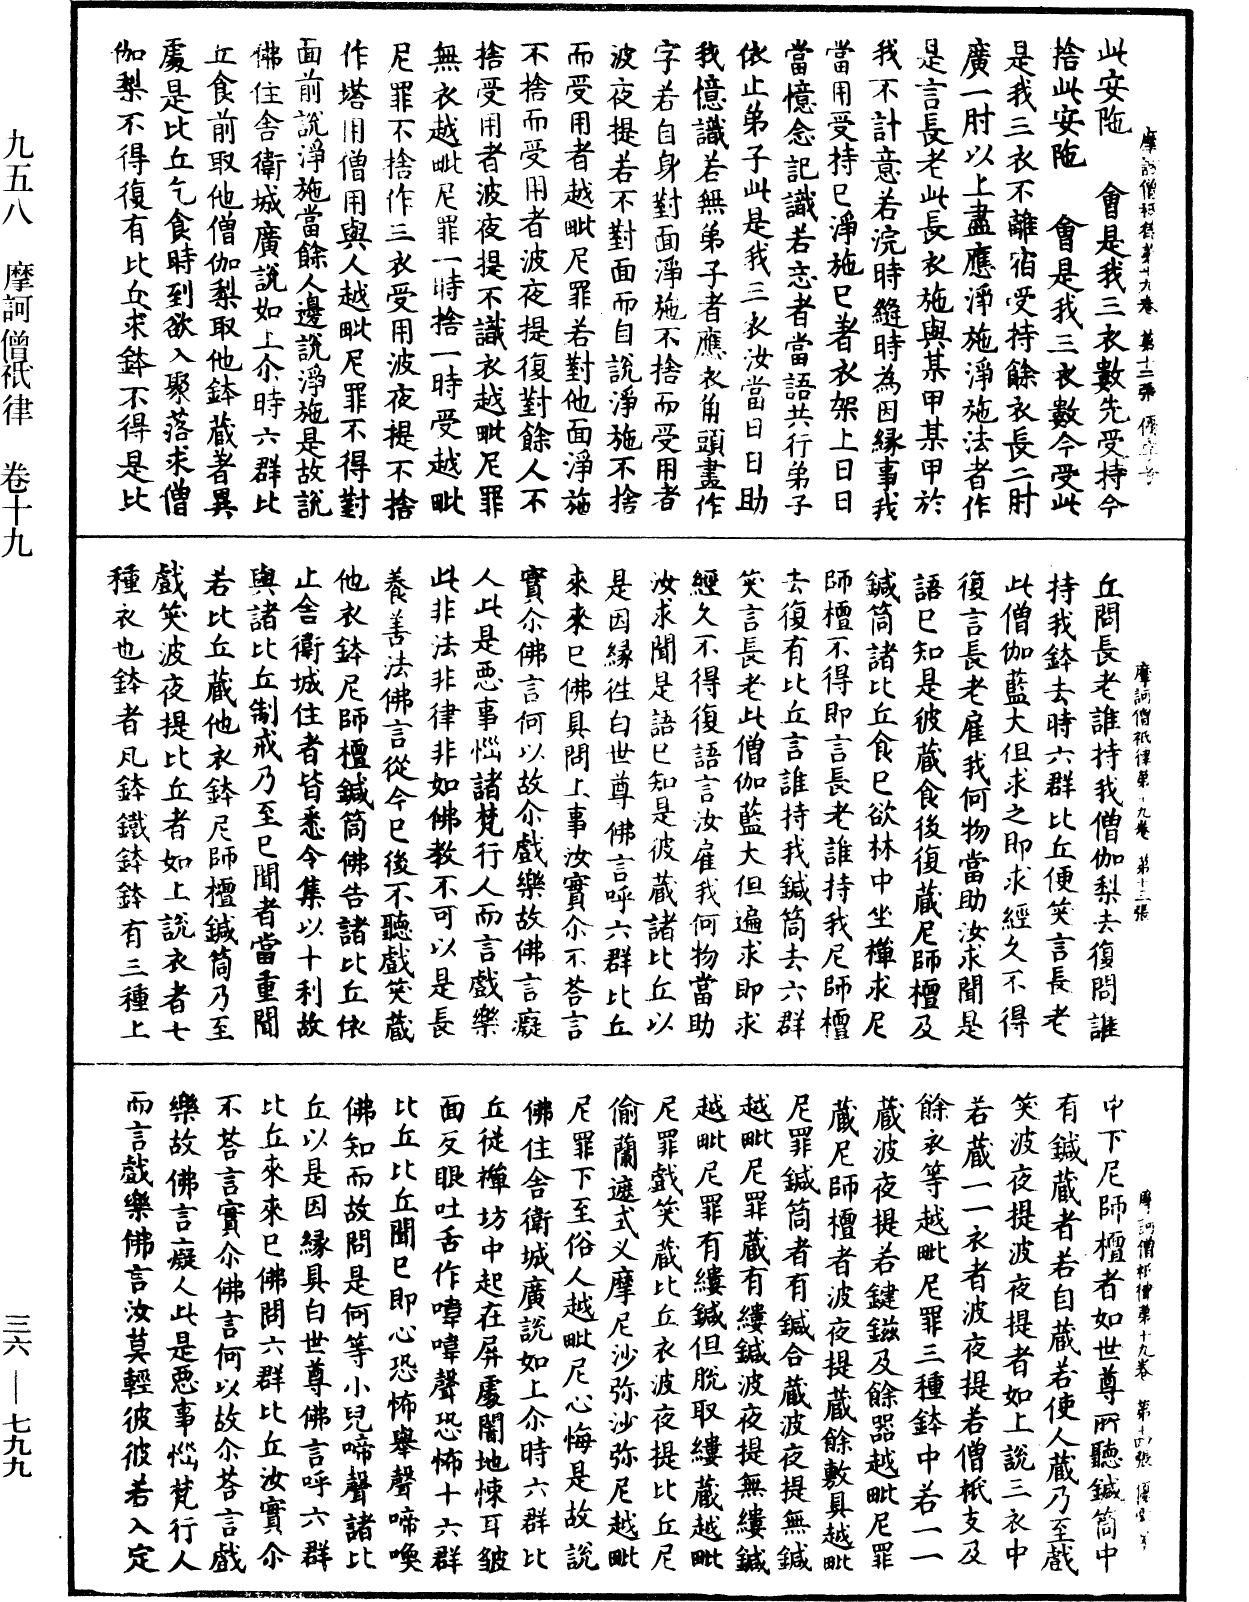 此安陁會是我三衣數先受持今
捨此安陁會是我三衣數今受此
是我三衣不離宿受持餘衣長二肘
廣一肘以上盡應淨施淨施法者作
是言長老此長衣施與某甲某甲於
我不計意若浣時縫時為因緣事我
當用受持已淨施已著衣架上日日
當憶念記識若忘者當語共行弟子
依止弟子此是我三衣汝當日日助
我憶識若無弟子者應衣角頭畫作
字若自身對面淨施不捨而受用者
波夜提若不對面而自說淨施不捨
而受用者越毗尼罪若對他面淨施
不捨而受用者波夜提復對餘人不
捨受用者波夜提不識衣越毗尼罪
無衣越毗尼罪一時捨一時受越毗
尼罪不捨作三衣受用波夜提不捨
作塔用僧用與人越毗尼罪不得對
面前說淨施當餘人邊說淨施是故說
佛住舍衛城廣說如上尒時六群比
丘食前取他僧伽梨取他鉢藏著異
處是比丘乞食時到欲入聚落求僧
伽梨不得復有比丘求鉢不得是比
摩訶僧祇律第十九卷 第十三張
丘問長老誰持我僧伽梨去復問誰
持我鉢去時六群比丘便笑言長老
此僧伽藍大但求之即求經久不得
復言長老雇我何物當助汝求聞是
語已知是彼藏食後復藏尼師檀及
鍼筒諸比丘食已欲林中坐禪求尼
師檀不得即言長老誰持我尼師檀
去復有比丘言誰持我鍼筒去六群
笑言長老此僧伽藍大但遍求即求
經久不得復語言汝雇我何物當助
汝求聞是語已知是彼藏諸比丘以
是因緣往白世尊佛言呼六群比丘
來來已佛具問上事汝實尒不荅言
實尒佛言何以故尒戲樂故佛言癡
人此是惡事惱諸梵行人而言戲樂
此非法非律非如佛教不可以是長
養善法佛言從今已後不聽戲笑藏
他衣鉢尼師檀鍼筒佛告諸比丘依
止舍衛城住者皆悉令集以十利故
與諸比丘制戒乃至已聞者當重聞
若比丘藏他衣鉢尼師檀鍼筒乃至
戲笑波夜提比丘者如上說衣者七
種衣也鉢者凡鉢鐵鉢鉢有三種上
中下尼師檀者如世尊所聽鍼筒中
有鍼藏者若自藏若使人藏乃至戲
笑波夜提波夜提者如上說三衣中
若藏一一衣者波夜提若僧祇支及
餘衣等越毗尼罪三種鉢中若一一
藏波夜提若鍵鎡及餘器越毗尼罪
藏尼師檀者波夜提藏餘敷具越毗
尼罪鍼筒者有鍼合藏波夜提無鍼
越毗尼罪藏有縷鍼波夜提無縷鍼
越毗尼罪有縷鍼但脫取縷藏越毗
尼罪戲笑藏比丘衣波夜提比丘尼
偷蘭遮式叉摩尼沙弥沙弥尼越毗
尼罪下至俗人越毗尼心悔是故說
佛住舍衛城廣說如上尒時六群比
丘從禪坊中起在屏處闇地悚耳皺
面反眼吐舌作㖞㖞聲恐怖十六群
比丘比丘聞已即心恐怖舉聲啼喚
佛知而故問是何等小兒啼聲諸比
丘以是因緣具白世尊佛言呼六群
比丘來來已佛問六群比丘汝實尒
不荅言實尒佛言何以故尒荅言戲
樂故佛言癡人此是惡事惱梵行人
而言戲樂佛言汝莫輕彼彼若入定
九五八 摩訶僧祇律 卷十九
三六—七九九